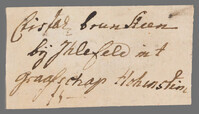 Cristal brunsteen
bij Ihlefeld int
graafschap Hohnstein